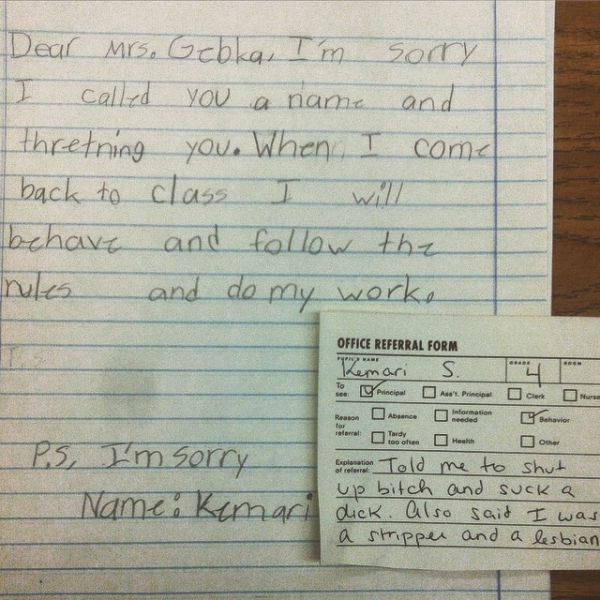 Dear Mrs. Gebka, I'm sorry
I called you a name and
thretning you. When I come
back to class I will
behave and follow the
rules and do my work.
P.S.
P.S. I'm sorry
Name: Kemari
OFFICE REFERRAL FORM
PUPIL'S NAME GRADE ROOM
Kemari S. 4
To see: Principal Ass't. Principal Clerk Nurse
Reason for referral: Absence Information needed Behavior
Tardy too often Health Other
Explanation of referral: Told me to shut
up bitch and suck a
dick. Also said I was
a stripper and a lesbian